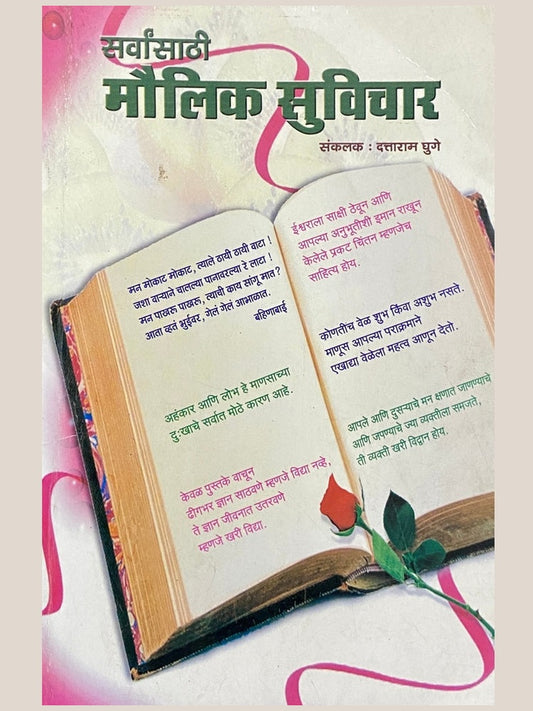 सर्वांसाठी
मौलिक सुविचार
संकलक : दत्ताराम घुगे
मन मोकाट मोकाट, त्याले ठायी ठायी वाटा !
जशा वार्‍याने चालल्या पानावरल्या रे लाटा !
मन पाखरू पाखरू, त्याची काय सांगू मात?
आता व्हतं भुईवर, गेलं गेलं आभाळात.
बहिणाबाई
अहंकार आणि लोभ हे माणसाच्या
दुःखाचे सर्वात मोठे कारण आहे.
केवळ पुस्तके वाचून
ढीगभर ज्ञान साठवणे म्हणजे विद्या नव्हे,
ते ज्ञान जीवनात उतरवणे
म्हणजे खरी विद्या.
ईश्वराला साक्षी ठेवून आणि
आपल्या अनुभूतीशी इमान राखून
केलेले प्रकट चिंतन म्हणजेच
साहित्य होय.
कोणतीच वेळ शुभ किंवा अशुभ नसते.
माणूस आपल्या पराक्रमाने
एखाद्या वेळेला महत्व आणून देतो.
आपले आणि दुसऱ्याचे मन क्षणात जाणण्याचे
आणि जपण्याचे ज्या व्यक्तीला समजते,
ती व्यक्ती खरी विद्वान होय.